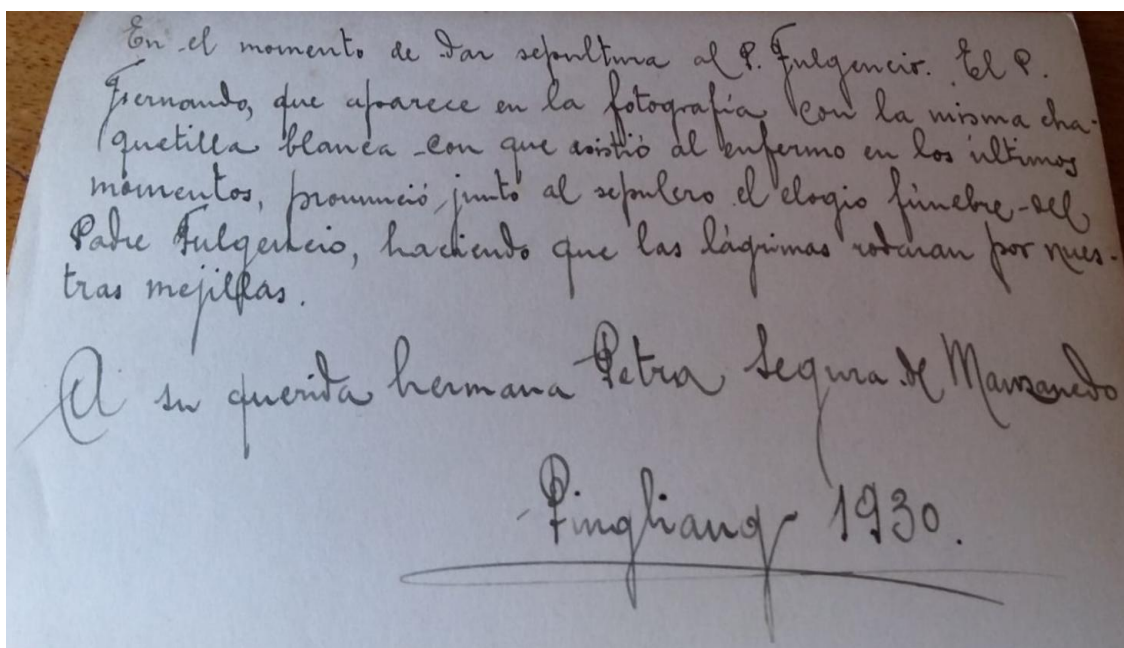 En el momento de dar sepultura al P. Fulgencio. El P.
Fernando, que aparece en la fotografía con la misma cha-
quetilla blanca con que asistió al enfermo en los últimos
momentos, pronunció, junto al sepulcro el elogio fúnebre del
Padre Fulgencio, haciendo que las lágrimas rodaran por nues-
tras mejillas.
A su querida hermana Petra Segura de Manzanedo
Pingliang 1930.